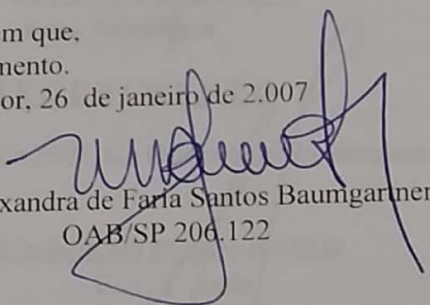 em que,
nento.
or, 26 de janeiro de 2.007
xandra de Faria Santos Baumgartner
OAB/SP 206.122